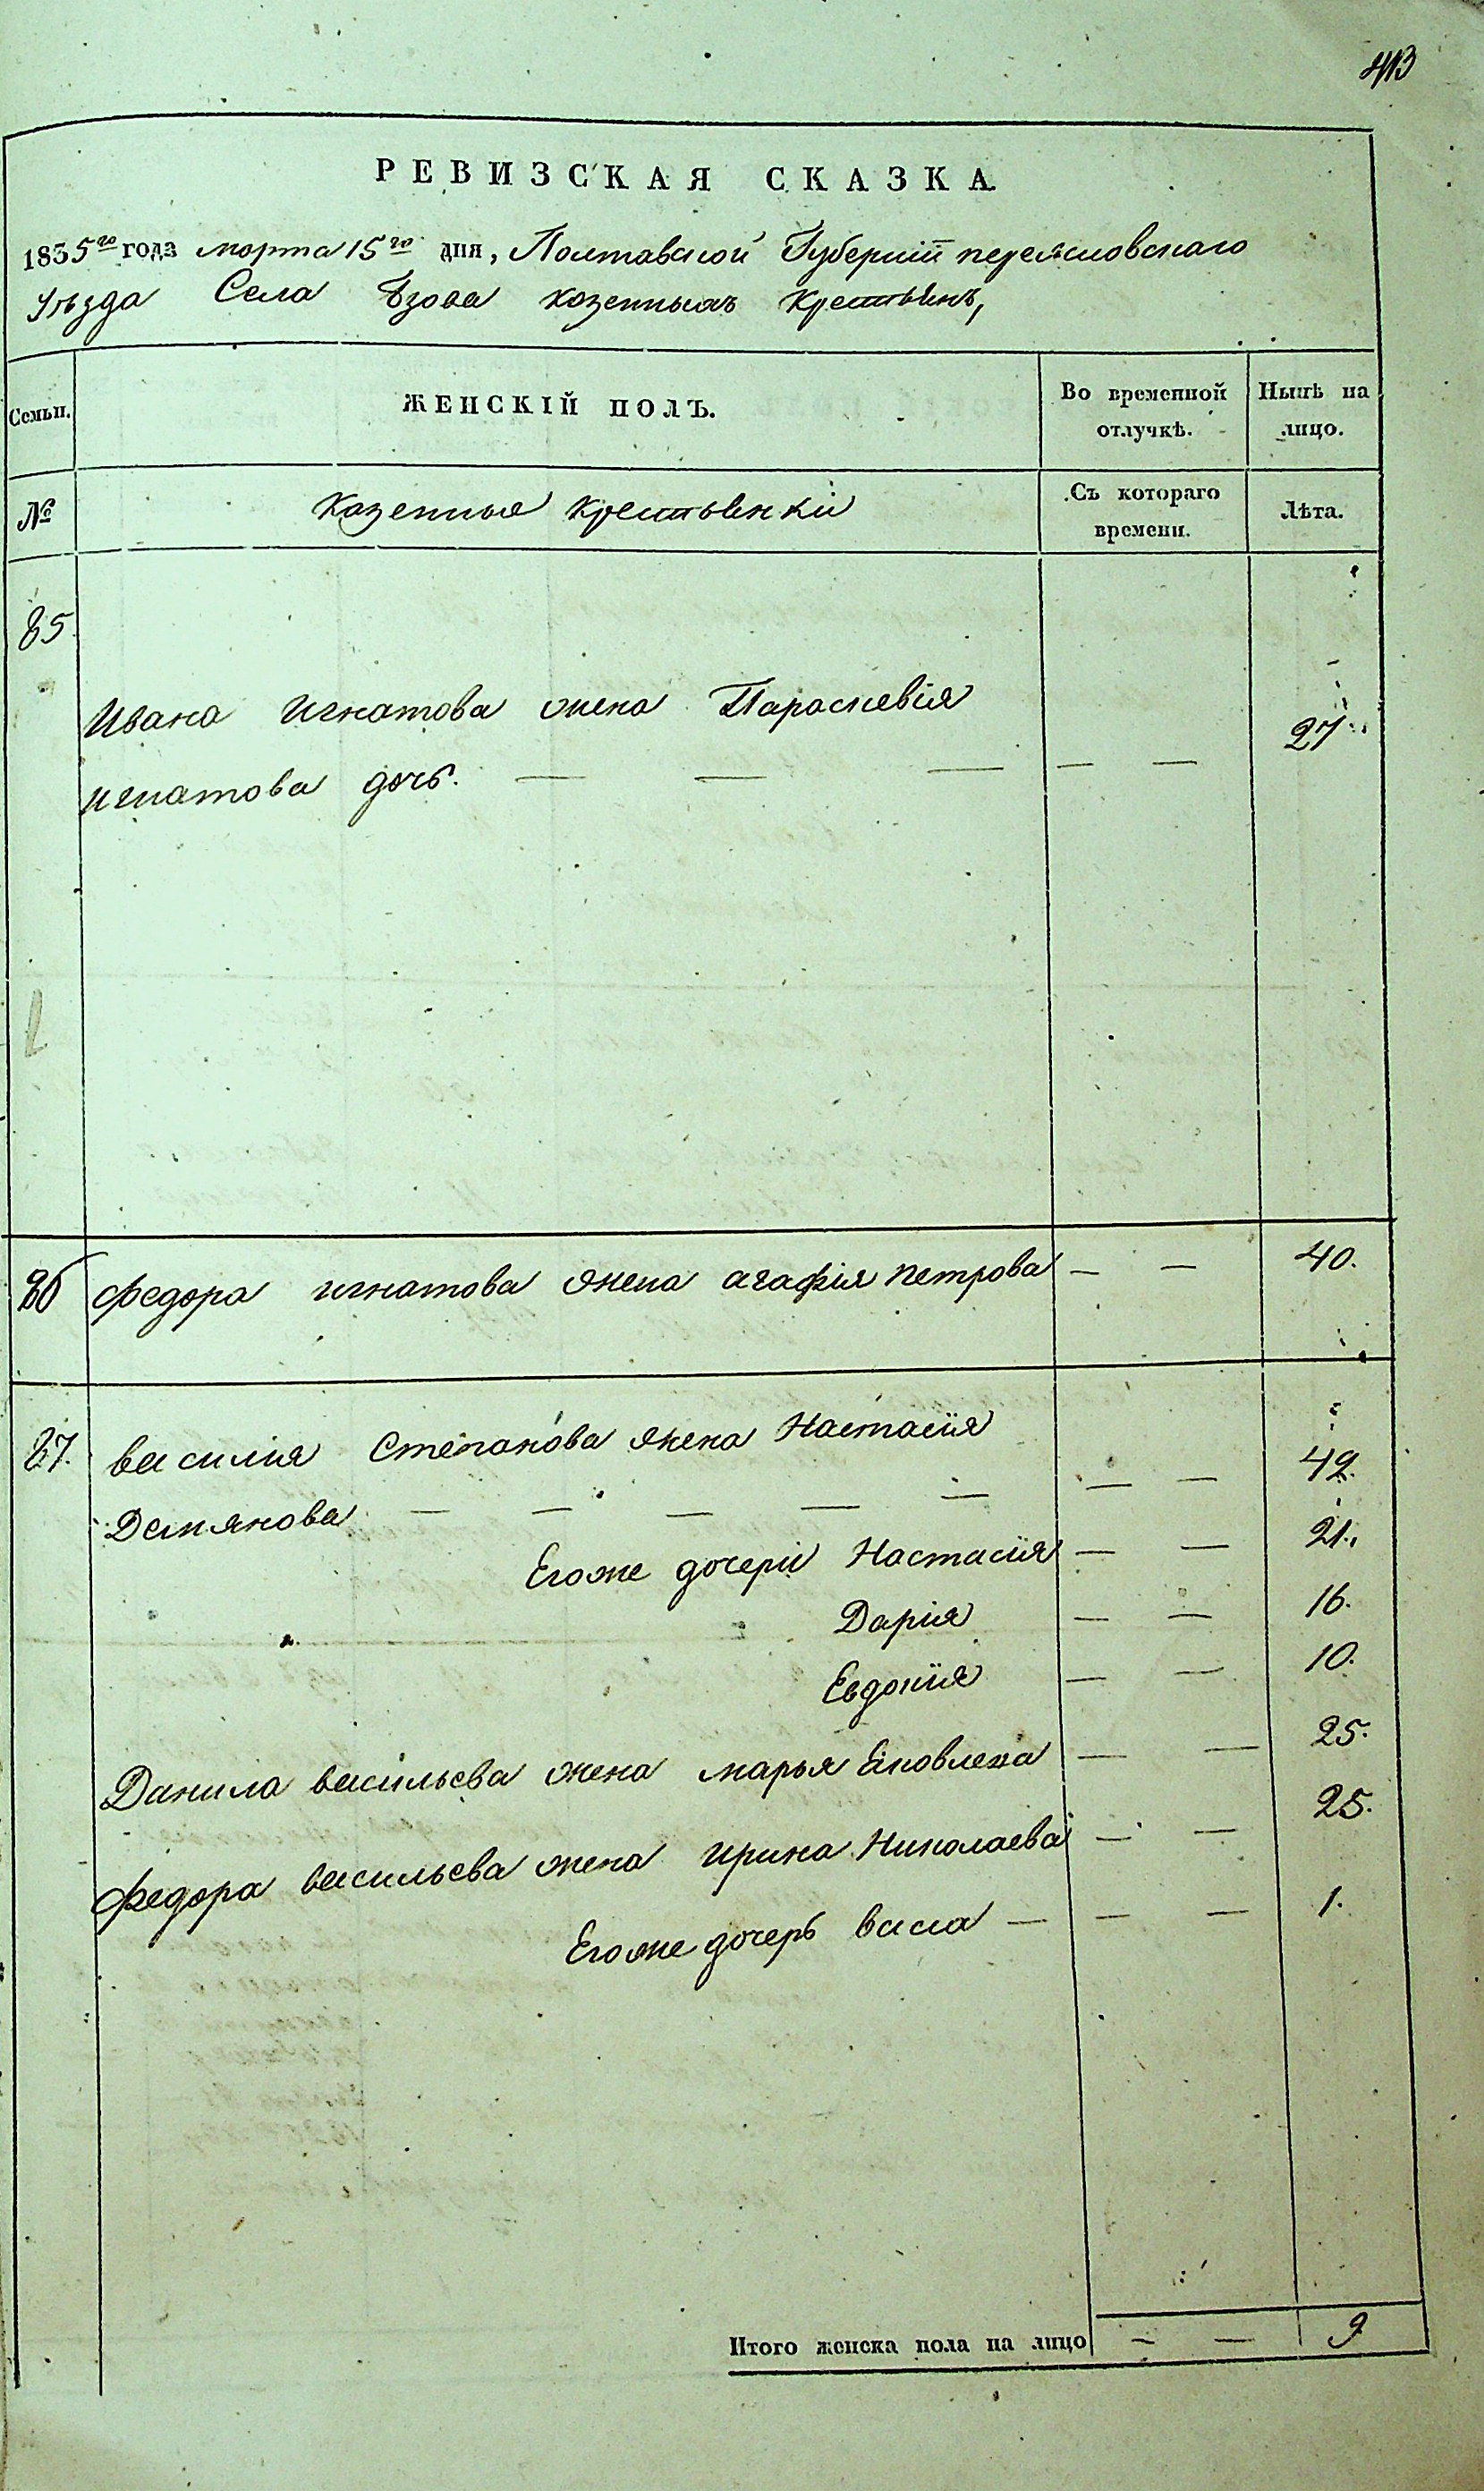 413
РЕВИЗСКАЯ СКАЗКА
1835го года марта 15го дня, Полтавской Губерний переясловского
Уѣзда Села Ѣзова козенныхъ Крестьянъ,
Семьи. ЖЕНСКІЙ ПОЛЪ. Во временной отлучкѣ. Нынѣ на лицо.
№ Козенные Крестьянки Съ котораго времени. Лѣта.
85
Ивана Игнатова жена Параскевія
игнатова дочь. — — — — — 27
86 федора игнатова жена агафія петрова — — 40.
87. василия Степанова жена Настасия
Демянова — — — — — — — 42.
Егоже дочери Настасия — — 21.
Дария — — 16.
Евдокия — — 10.
Данила васильева жена марья Яковлева — — 25.
федора васильева жена ирина Николаева — — 25.
Егоже дочерь васса — — — 1.
Итого женска пола на лицо — — 9